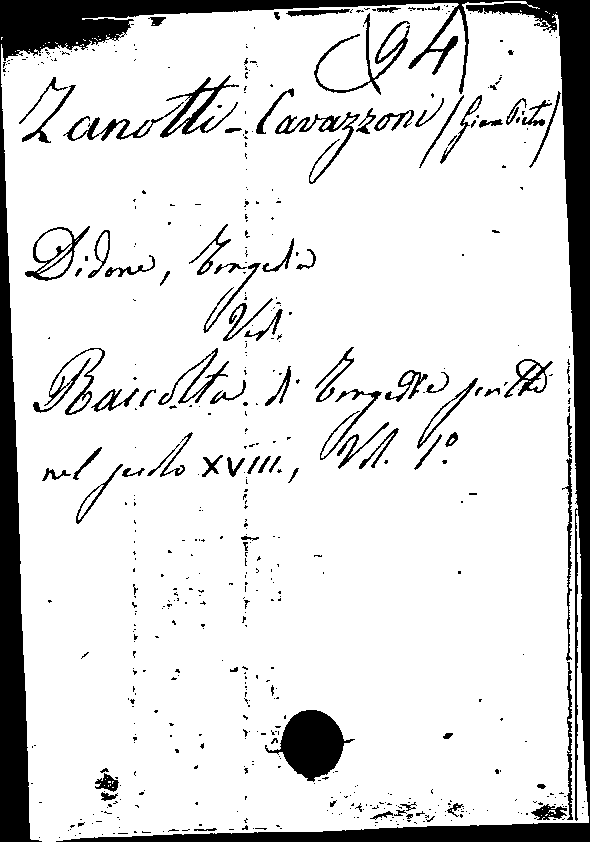 (94)
Zanotti-Cavazzoni (Giam Pietro)
Didone, Tragedia
Vedi
Raccolta di Tragedie scritte
nel secolo XVIII., Vol. 1º